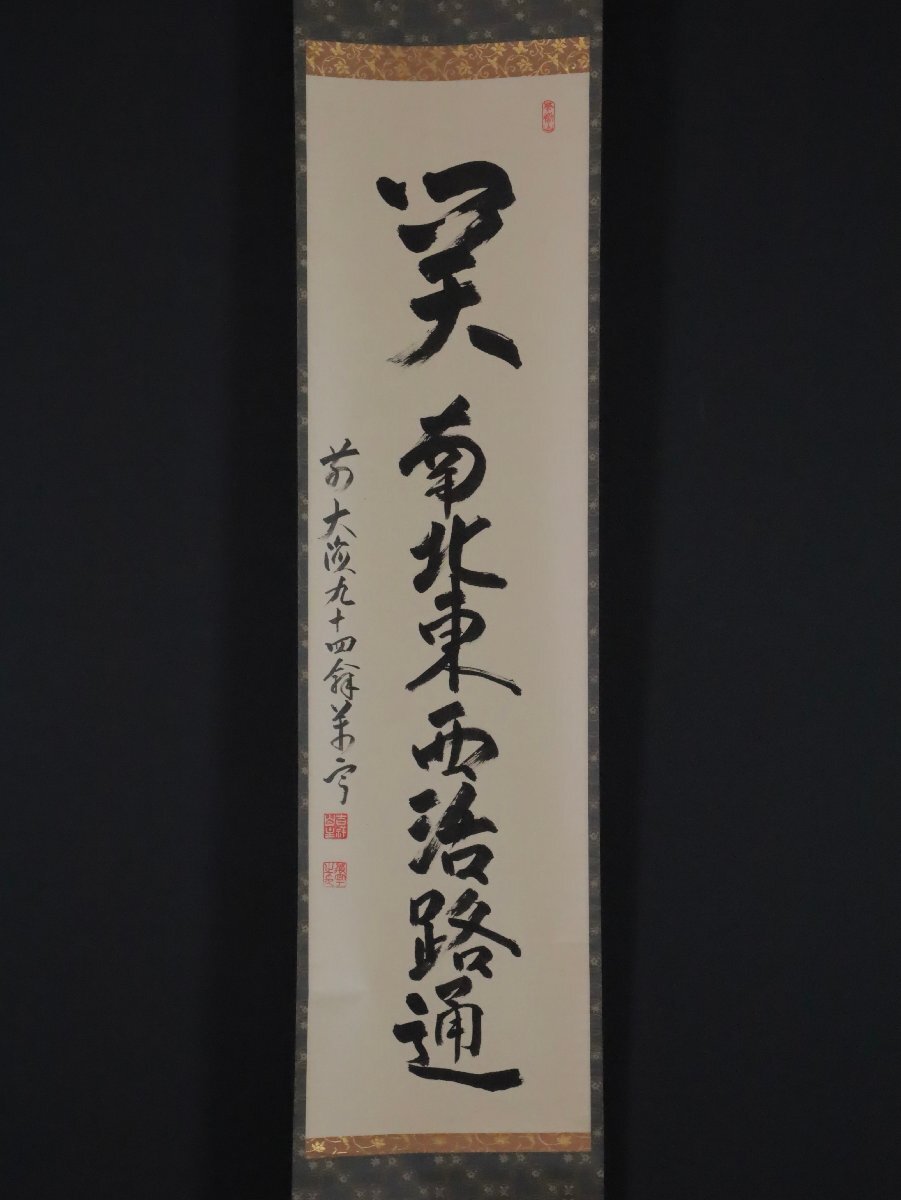 関
南北東西活路通
前大徳九十四翁